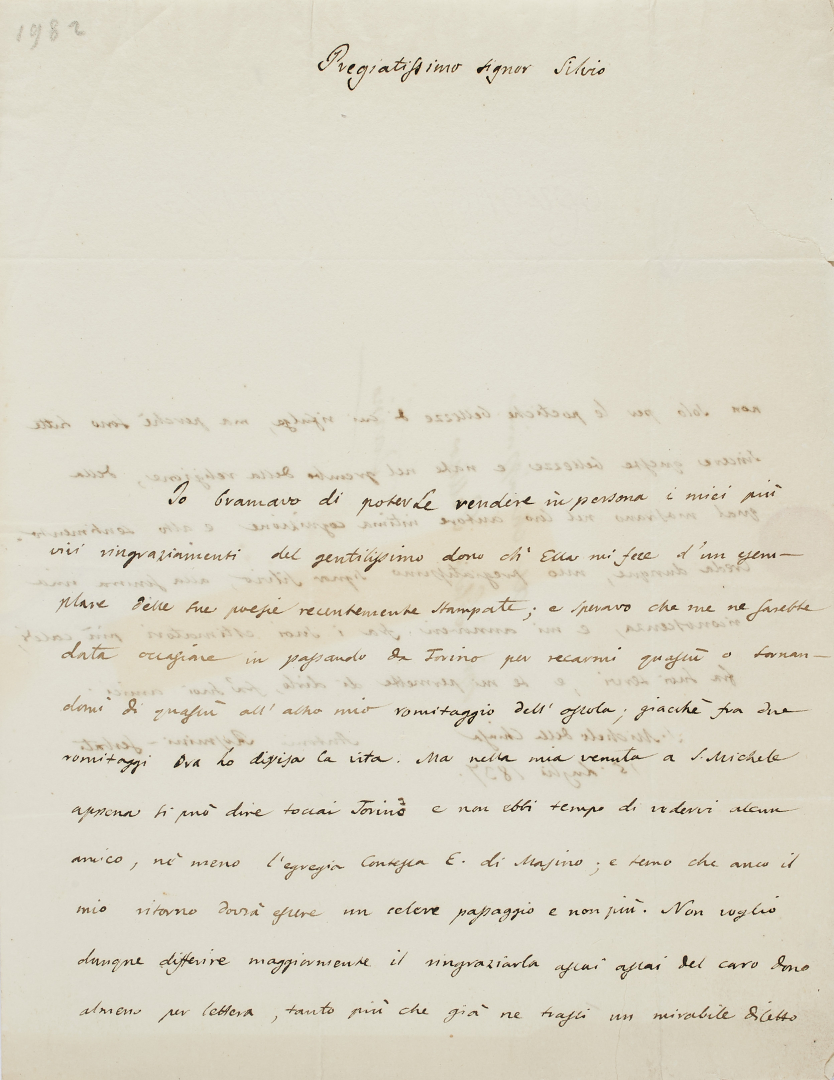 1982
Pregiatissimo signor Silvio
Io bramavo di poterLe rendere in persona i miei più
vivi ringraziamenti del gentilissimo dono ch' Ella mi fece d'un esem-
plare delle sue poesie recentemente stampate; e speravo che me ne sarebbe
data occasione in passando da Torino per recarmi quassù o tornan-
domi di quassù all' altro mio romitaggio dell' Ossola; giacchè fra due
romitaggi ora ho divisa la vita. Ma nella mia venuta a S. Michele
appena si può dire toccai Torino e non ebbi tempo di vedervi alcun
amico, nè meno l'egregia Contessa E. di Masino; e temo che anco il
mio ritorno dovrà essere un celere passaggio e non più. Non voglio
dunque differire maggiormente il ringraziarla assai assai del caro dono
almeno per lettera, tanto più che già ne trassi un mirabile diletto